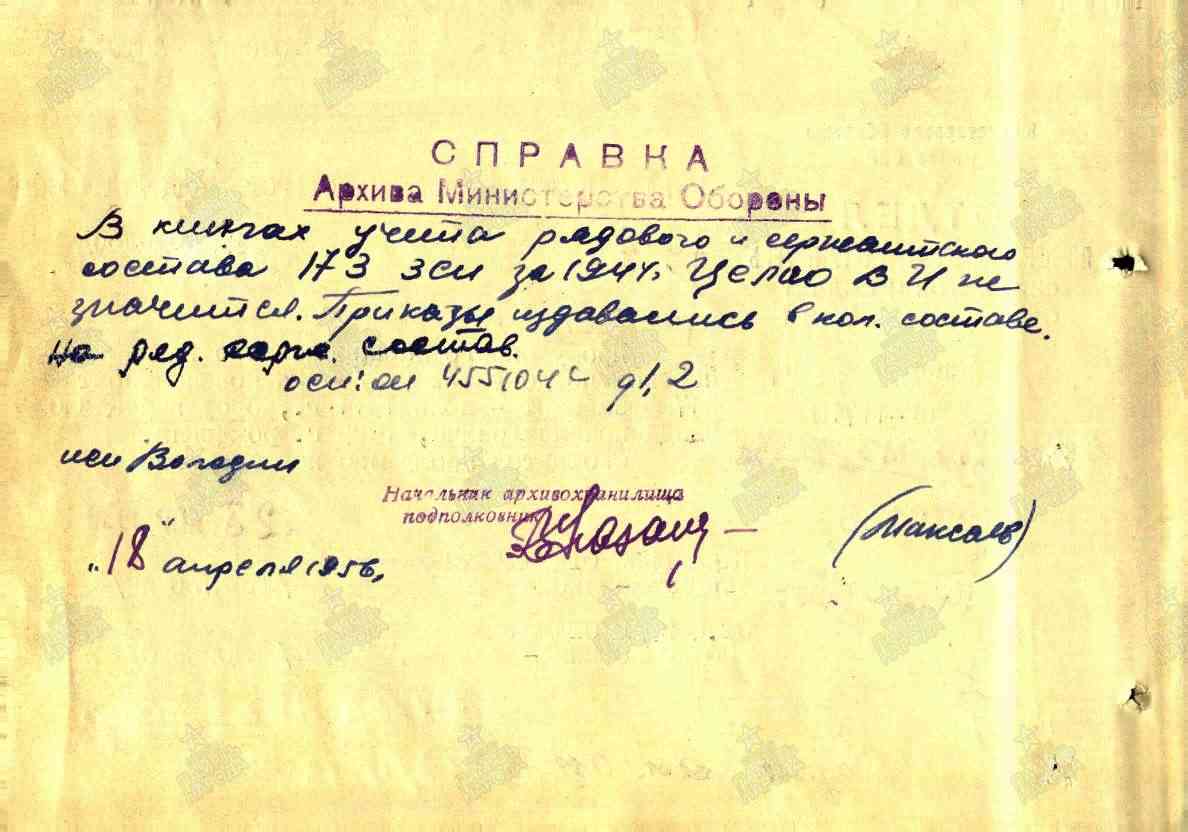 СПРАВКА
Архива Министерства Обороны
В книгах учета рядового и сержантского
состава 173 зсп за 1944г. Целао В И не
значится. Приказы издавались в кол. составе.
На ряд. серж. состав.
осн: оп 455104с д1,2
исп Володин
Начальник архивохранилища
подполковник
(Максаев)
"18" апреля 1956,